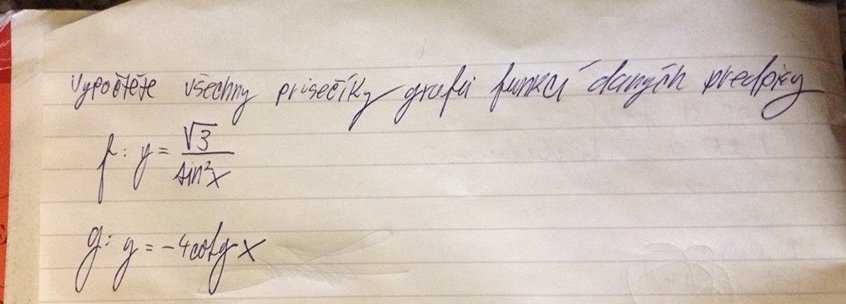 Vypočtěte všechny průsečíky grafů funkcí daných předpisy
f: y = √3 / sin²x
g: y = -4cotg x